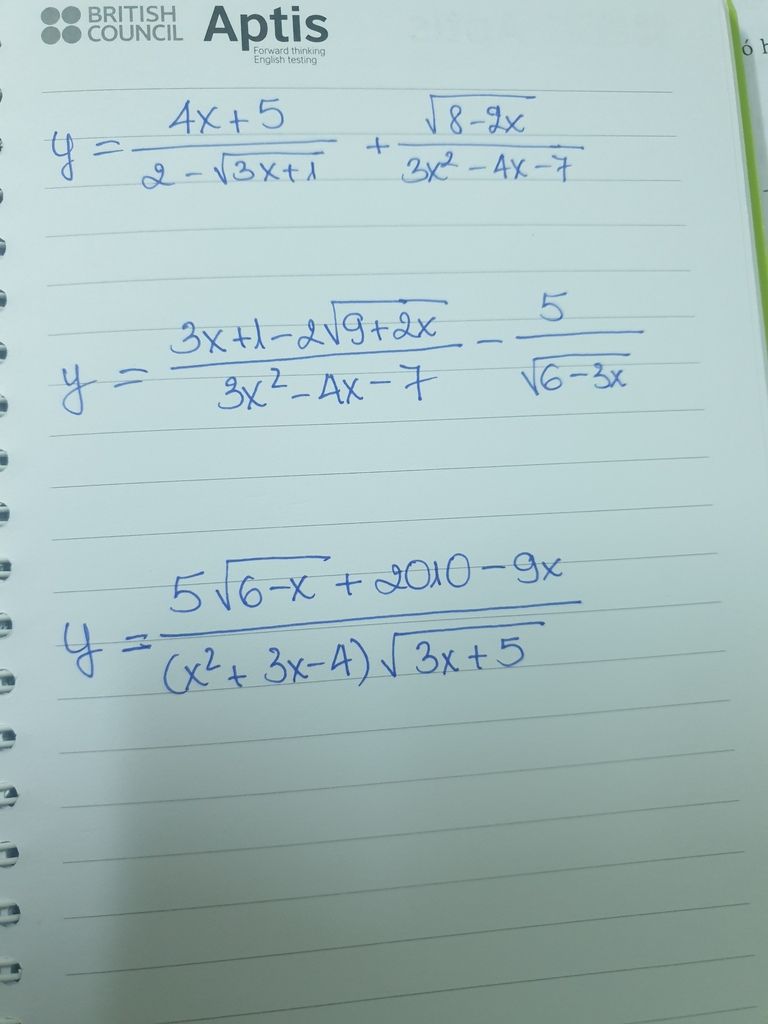 BRITISH COUNCIL Aptis
Forward thinking
English testing
ó h
y = \frac{4x+5}{2-\sqrt{3x+1}} + \frac{\sqrt{8-2x}}{3x^2-4x-7}
y = \frac{3x+1-2\sqrt{9+2x}}{3x^2-4x-7} - \frac{5}{\sqrt{6-3x}}
y = \frac{5\sqrt{6-x}+2010-9x}{(x^2+3x-4)\sqrt{3x+5}}